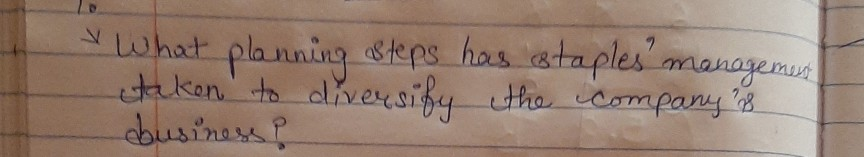 What planning steps has staples' management
taken to diversify the company's
business?